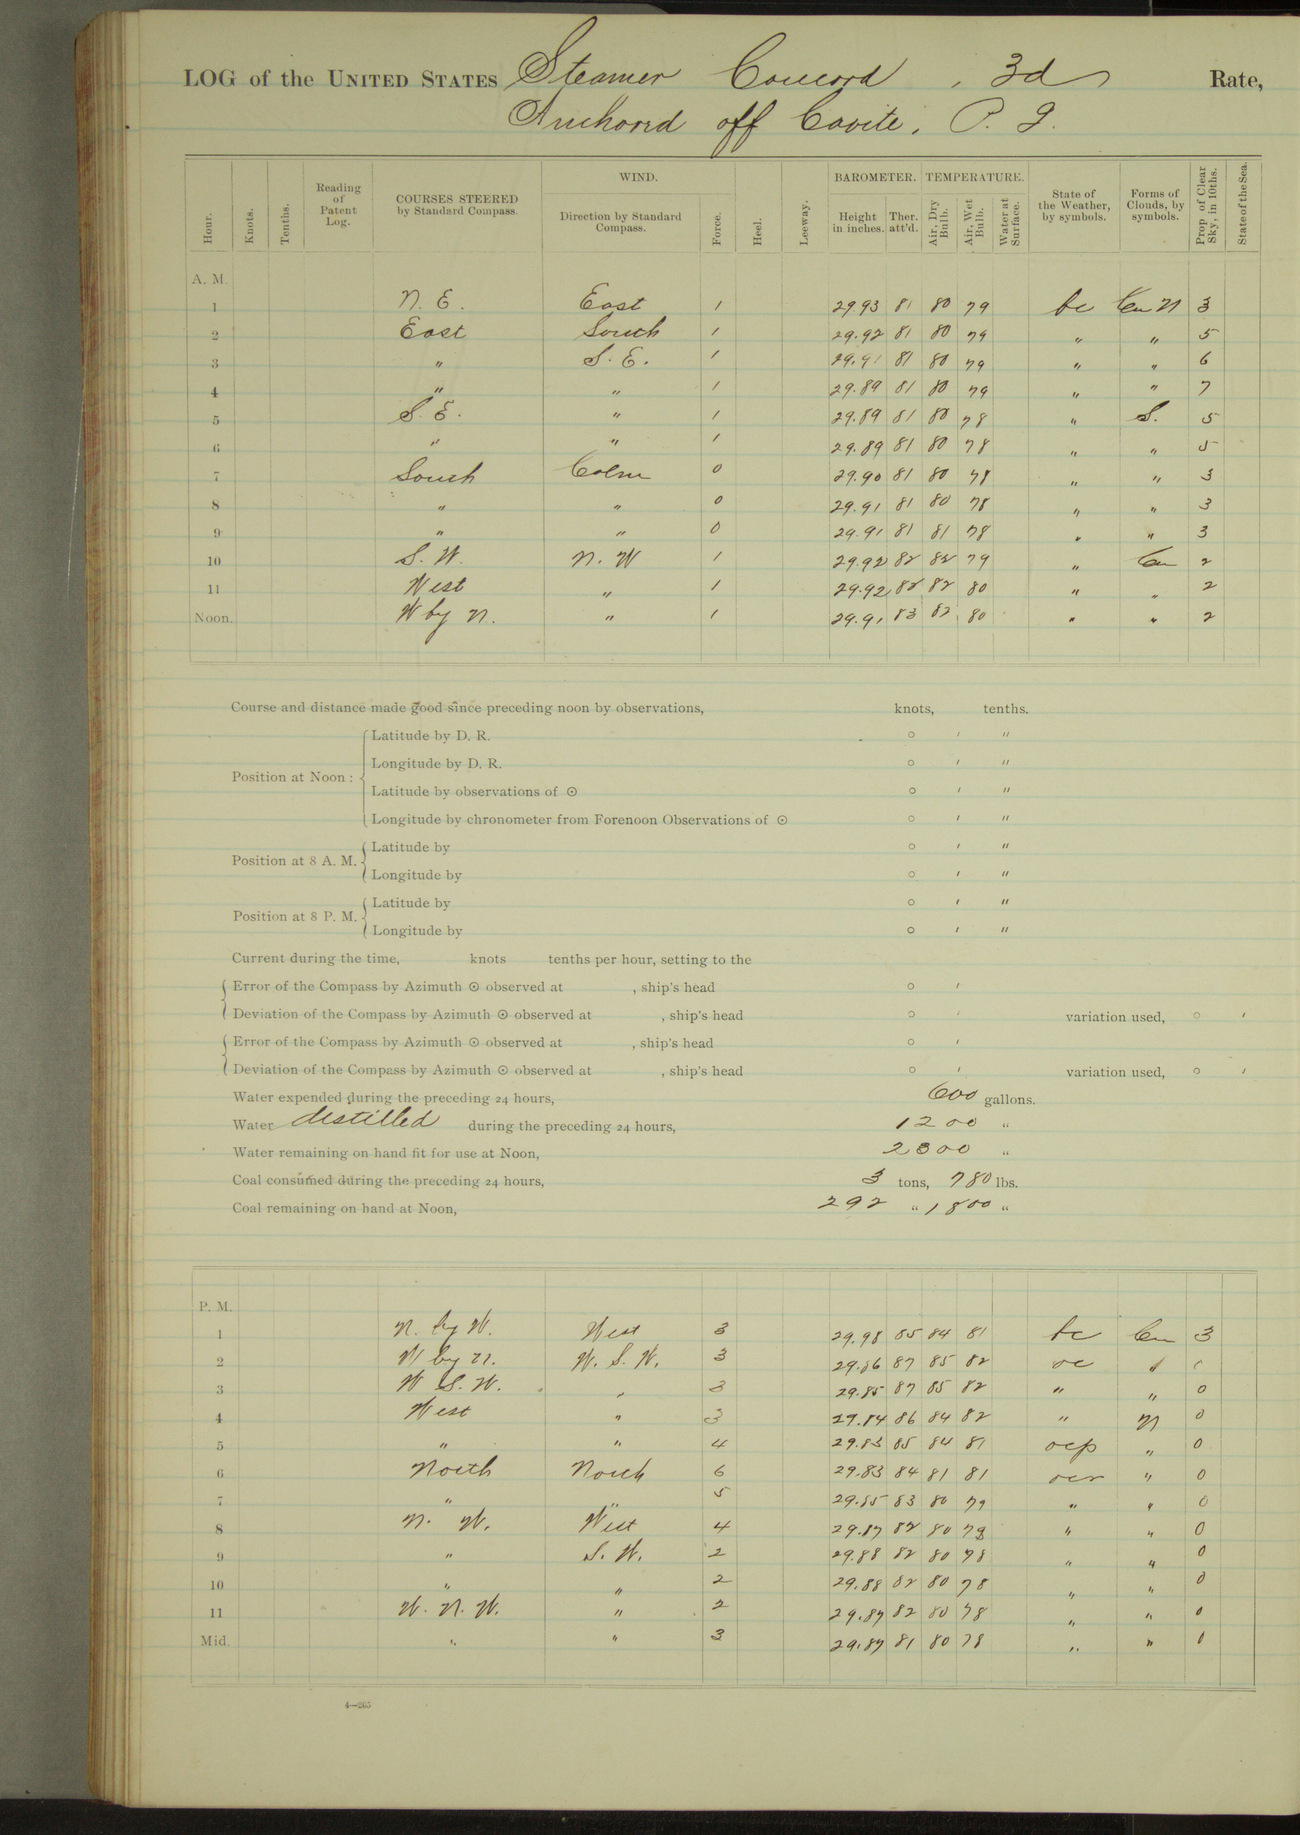 LOG of the UNITED STATES Steamer Concord, 3d Rate,
Anchored off Cavite, P. I.
WIND. BAROMETER. TEMPERATURE.
Hour. Knots. Tenths. Reading of Patent Log. COURSES STEERED by Standard Compass. Direction by Standard Compass. Force. Heel. Leeway. Height in inches. Ther. att'd. Air, Dry Bulb. Air, Wet Bulb. Water at Surface. State of the Weather, by symbols. Forms of Clouds, by symbols. Prop. of Clear Sky, in 10ths. State of the Sea.
A. M.
1 N. E. East 1 29.93 81 80 79 bc Cu N 3
2 East South 1 29.92 81 80 79 " " 5
3 " S. E. 1 29.91 81 80 79 " " 6
4 " " 1 29.89 81 80 79 " " 7
5 S. E. " 1 29.89 81 80 78 " S. 5
6 " " 1 29.89 81 80 78 " " 5
7 South Calm 0 29.90 81 80 78 " " 3
8 " " 0 29.91 81 80 78 " " 3
9 " " 0 29.91 81 81 78 " " 3
10 S. W. N. W 1 29.92 82 82 79 " Cu 2
11 West " 1 29.92 82 82 80 " " 2
Noon. W by N. " 1 29.91 83 82 80 " " 2
Course and distance made good since preceding noon by observations, knots, tenths.
Latitude by D. R. ° ′ ″
Longitude by D. R. ° ′ ″
Position at Noon :
Latitude by observations of ☉ ° ′ ″
Longitude by chronometer from Forenoon Observations of ☉ ° ′ ″
Latitude by ° ′ ″
Position at 8 A. M.
Longitude by ° ′ ″
Latitude by ° ′ ″
Position at 8 P. M.
Longitude by ° ′ ″
Current during the time, knots tenths per hour, setting to the
Error of the Compass by Azimuth ☉ observed at , ship's head ° ′
Deviation of the Compass by Azimuth ☉ observed at , ship's head ° ′ variation used, ° ′
Error of the Compass by Azimuth ☉ observed at , ship's head ° ′
Deviation of the Compass by Azimuth ☉ observed at , ship's head ° ′ variation used, ° ′
Water expended during the preceding 24 hours, 600 gallons.
Water distilled during the preceding 24 hours, 1200 "
Water remaining on hand fit for use at Noon, 2300 "
Coal consumed during the preceding 24 hours, 3 tons, 780 lbs.
Coal remaining on hand at Noon, 292 " 1800 "
P. M.
1 N. by W. West 3 29.98 85 84 81 bc Cu 3
2 W by N. W. S. W. 3 29.86 87 85 82 oc 1
3 W S. W. " 3 29.85 87 85 82 " " 0
4 West " 3 29.84 86 84 82 " N 0
5 " " 4 29.83 85 84 81 ocp " 0
6 North North 6 29.83 84 81 81 ocr " 0
7 " " 5 29.85 83 80 79 " " 0
8 N. W. West 4 29.87 82 80 79 " " 0
9 " S. W. 2 29.88 82 80 78 " " 0
10 " " 2 29.88 82 80 78 " " 0
11 W. N. W. " 2 29.87 82 80 78 " " 0
Mid. " " 3 29.87 81 80 78 " " 0
4—265